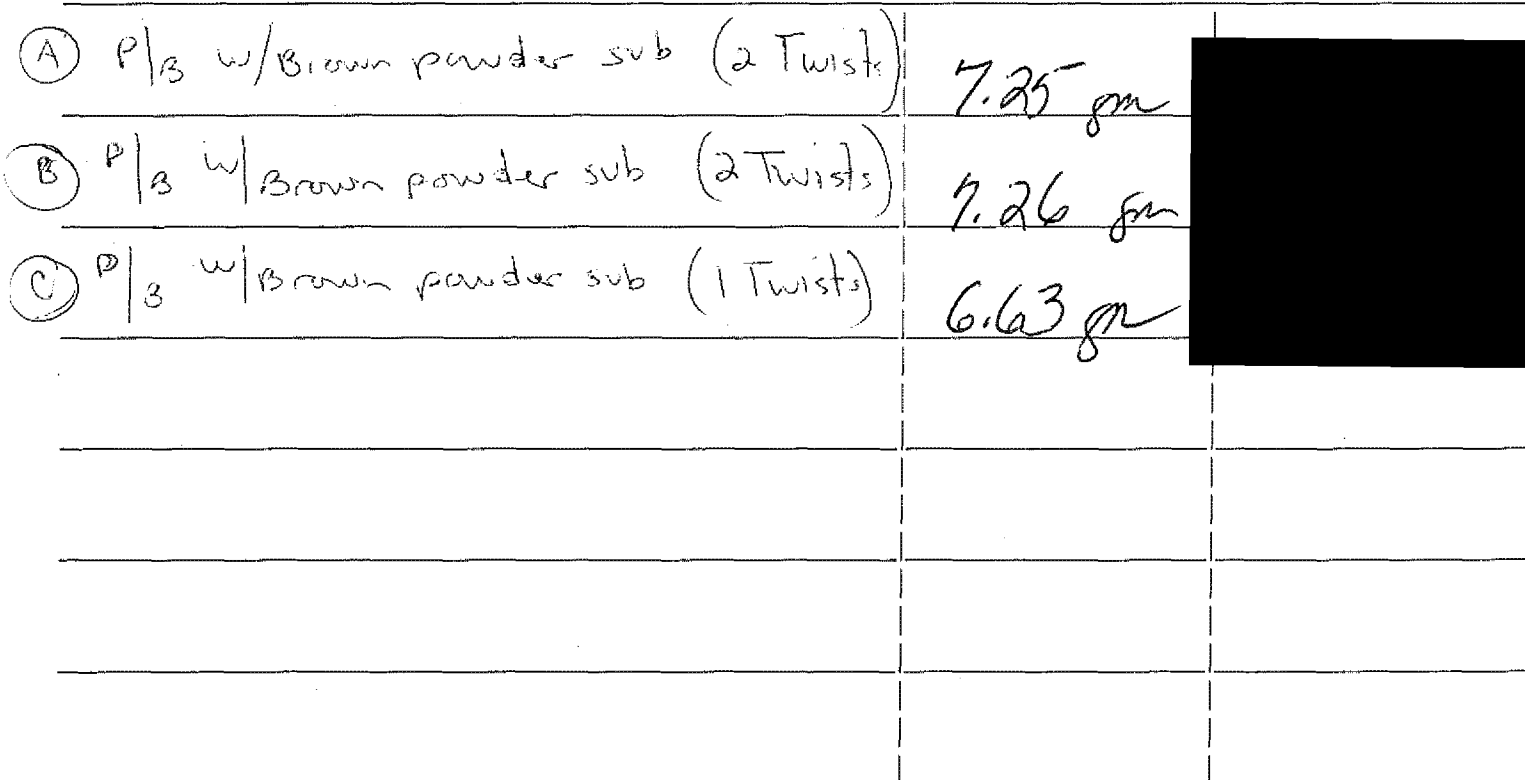 A P/B w/Brown powder sub (2 Twists) 7.25 gm
B P/B w/Brown powder sub (2 Twists) 7.26 gm
C P/B w/Brown powder sub (1 Twists) 6.63 gm